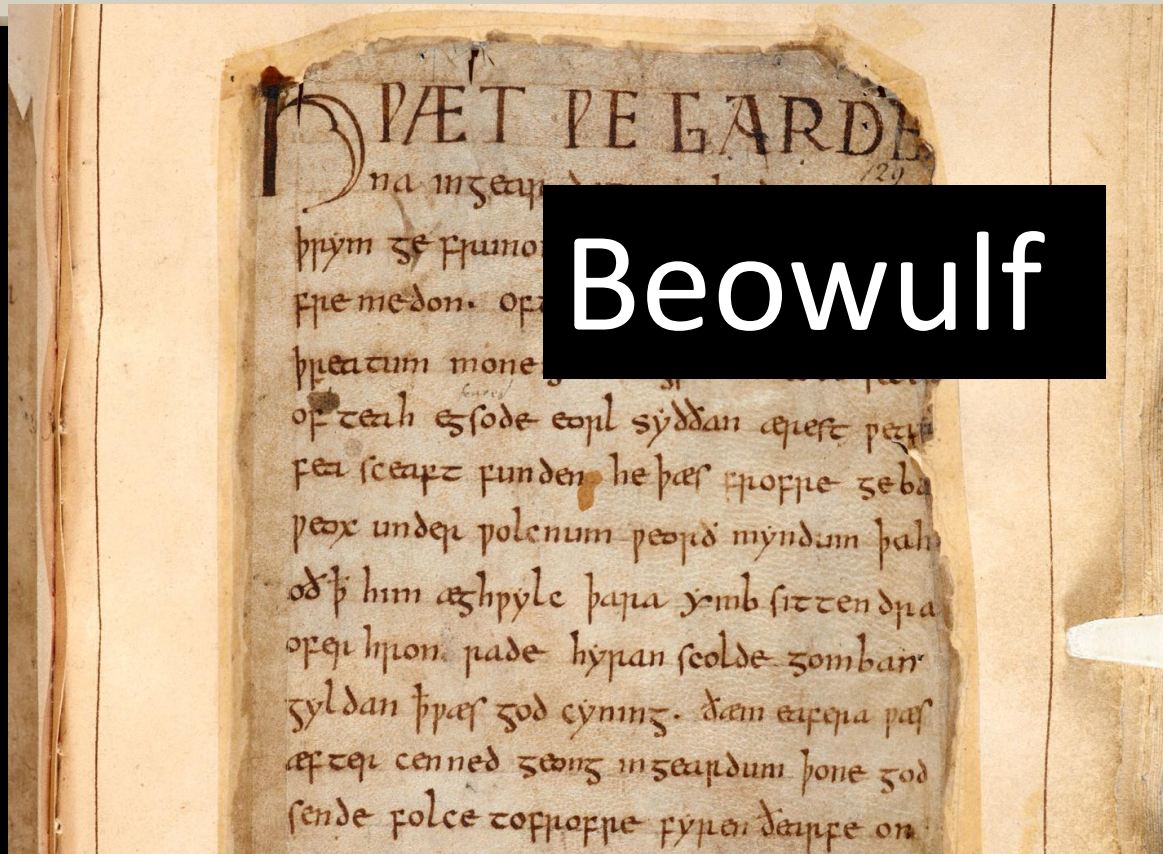 HǷÆT ǷE GARDE
129
na ingear
þrym ge
fre medon.
þreatum
of teah egsode eorl syððan ærest ƿear
fea sceaft funden he þæs frofre geba
ƿeox under ƿolcnum ƿeorð myndum þah
oð ꝥ him æghƿylc þara ymb sittendra
ofer hron rade hyran scolde gomban
gyldan ꝥ ƿæs god cyning. ðæm eafera ƿæs
æfter cenned geong ingeardum þone god
sende folce tofrofre fyren ðearfe on
Beowulf